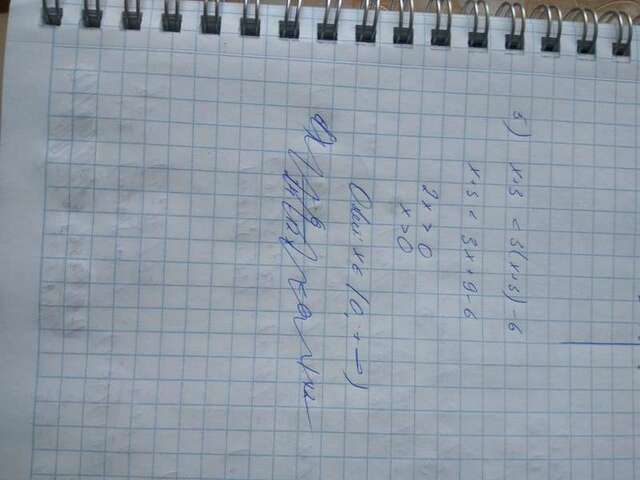 б) x+3 < 3(x+3)-6
x+3 < 3x+9-6
2x > 0
x > 0
Ответ: x ∈ (0, +∞)